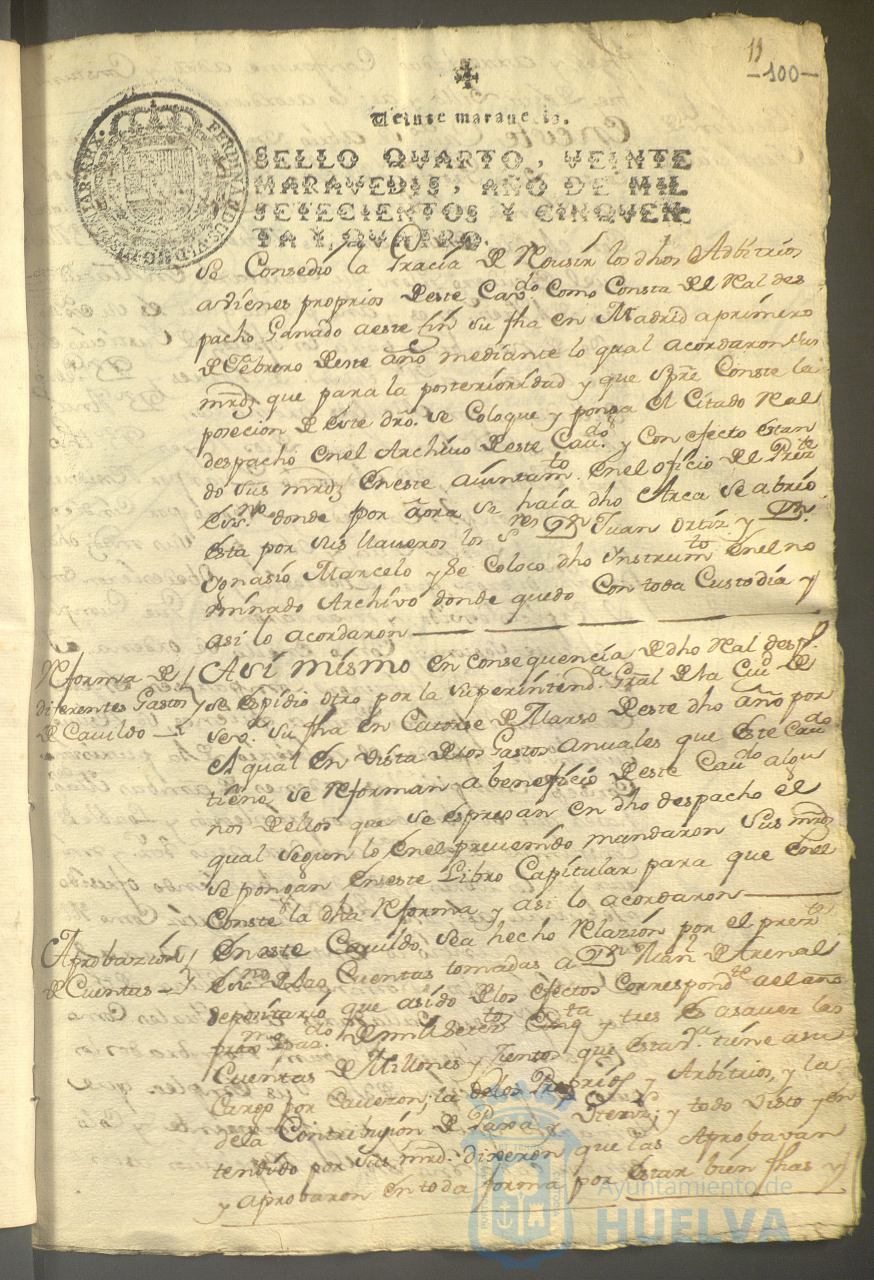 11
-100-
Veinte maravedis.
SELLO QVARTO, VEINTE
MARAVEDIS, AÑO DE MIL
SETECIENTOS Y CINQVEN-
TA Y QVATRO.
FERDINANDUS VI D G HISPANIAR REX
se Consedió la Gracia de los dhos Adbitrios
a vienes proprios deste Cavdo como Consta del Real des
pacho Ganado a este fin su fha en Madrid a primero
de Febrero deste año mediante lo qual acordaron sus
mrds que para la posterioridad y que spre Conste la
posecion de este dro. se Coloque y ponga el Citado Real
despacho en el Archivo deste Cavdo y Con efecto estan
do sus mrds en este aiuntamto en el oficio del Preste
Essno donde por aora se haía dho Arca se abrio
esta por sus llaveros los Sres Dn Juan Ortiz y Dn
Ygnasio Marcelo y se Coloco dho instrumto en el no
minado Archivo donde quedo Con toda Custodia y
asi lo acordaron
Reforma de
diferentes Gastos
de Cavildo
Asi mismo en consequencia de dho Real desp.
se espidio otro por la superintenda Gral de la Ciud de
Seva su fha en Catorse de Marso deste dho año por
el qual en vista de los Gastos anuales que este Cavdo
tiene se Reforman a beneficio deste Cavdo algu
nos dellos que se espresan en dho despacho el
qual segun lo en el prevenido mandaron sus mrds
se pongan en este Libro Capitular para que en el
Conste la dha Reforma y asi lo acordaron
Aprobazion
de Cuentas
En este Cavildo se a hecho Relazion por el preste
Essno de las Cuentas tomadas a Dn Manl de Arenal
depositario que a sido de los efectos Correspondte al año
pmo pasado de mil setetos Cinqta y tres es a saver las
Cuentas de Millones y Zientos que esta va tiene a su
Cargo por Caveron, la de los Proprios y Arbitrios, y la
de la Contribuzion de Paxa y Utensos; y todo visto y en
tendido por sus mrds. dixeron que las Aprobavan
y aprobaron en toda forma por estar bien fhas y
Ayuntamiento de
HUELVA